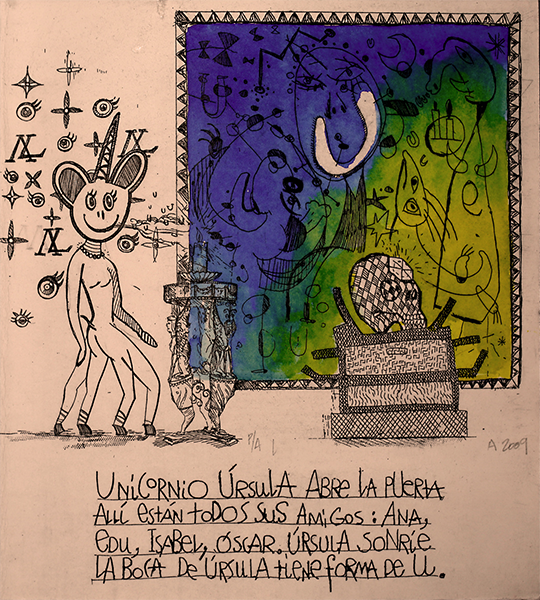 P/A 1 A 2009
UNICORNIO ÚRSULA ABRE LA PUERTA
ALLÍ ESTÁN TODOS SUS AMIGOS: ANA,
EDU, ISABEL, ÓSCAR. ÚRSULA SONRÍE
LA BOCA DE ÚRSULA TIENE FORMA DE U.